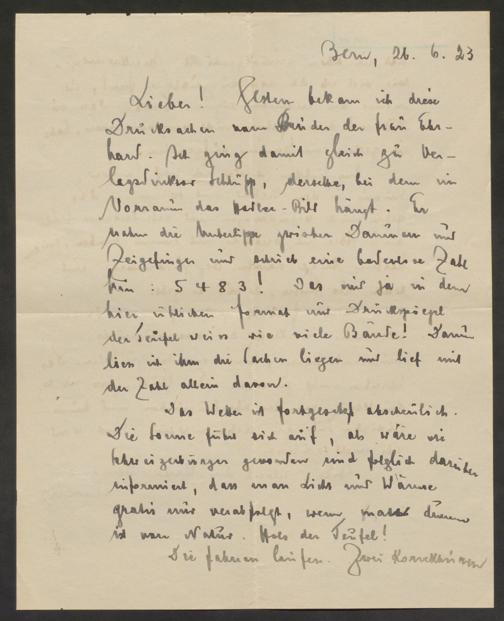 Bern, 26. 6. 23
Lieber! Gestern bekam ich diese
Drucksachen vom Bruder der Frau Ehr-
hard. Ich ging damit gleich zu Ver-
lagsdirektor Schlupp, derselbe, bei dem im
Vorraum das Hesse-Bild hängt. Er
nahm die Unterlippe zwischen Daumen und
Zeigefinger und schrieb eine bodenlose Zahl
hin: 5483! Das sind ja in dem
hier üblichen Format und Druckspiegel
der Teufel weiss wie viele Bände! Dann
liess ich ihm die Sachen liegen und lief mit
der Zahl allein davon.
Das Wetter ist fortgesetzt abscheulich.
Die Sonne führt sich auf, als wäre sie
Schweizerbürger geworden und folglich darüber
informiert, dass man Licht und Wärme
gratis nur verabfolgt, wenn man dumm
ist von Natur. Hols der Teufel!
Die Fahnen laufen. Zwei